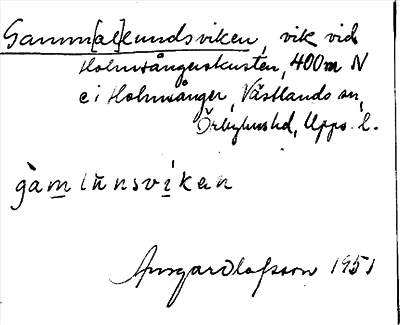 Gamm[al]sundsviken, vik vid
Holmsångerskusten, 400 m N
e i Holmsånger, Västlands sn,
Örbyhus hd, Upps. l.
gàmlsúnsvíken
Ansgar Olofsson 1951